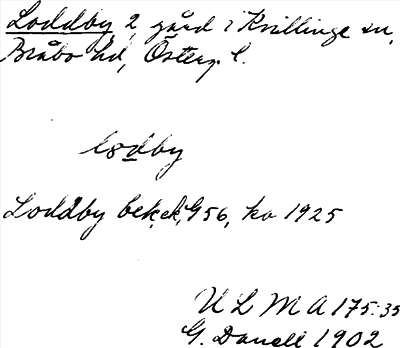 Loddby 2 gård i Kvillinge sn,
Bråbo hd, Österg. l.
lodby
Loddby bek.ek. G 56, ka 1925
U L M A 175:35
G. Danell 1902